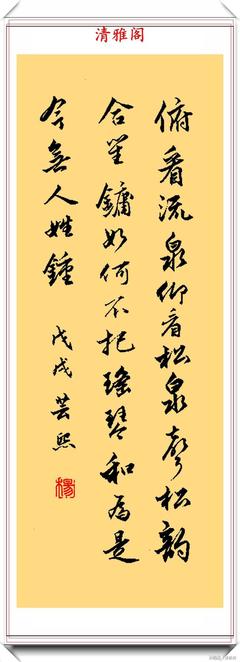 清雅阁
俯看流泉仰看松泉聲松韵
合笙鏞如何不把瑤琴和爲是
今無人姓鍾
戊戌芸熙
楊